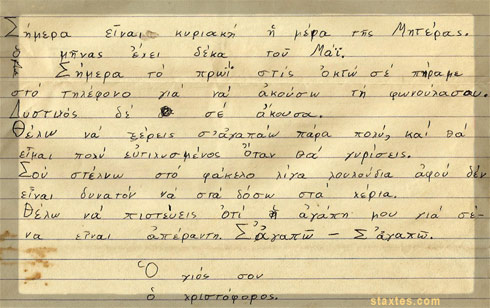 Σήμερα εἶναι κυριακή ἡ μέρα τῆς Μητέρας.
ὁ μῆνας ἔχει δέκα τοῦ Μάϊ.
Σήμερα τό πρωΐ στίς ὀκτώ σέ πῆραμε
στό τηλέφονο γιά νά ἀκούσω τή φωνούλα σου.
Δυστιὸς δέ σέ ἄκουσα.
Θέλω νά ξέρεις σ'ἀγαπάω πάρα πολύ, καί θα
εἶμαι πολύ εὐτιλισμένος ὅταν θά γυρίσεις.
Σοῦ στέλνω στό φάκελο λίγα λουλούδια ἀφοῦ δέν
εἶναι δυνατόν νά στά δόσω στά χέρια.
Θέλω νά πιστεύεις ὅτι ἡ ἀγάπη μου γιά σέ-
να εἶναι ἀπέραντη. Σ'ἀγαπῶ – Σ'ἀγαπῶ.
Ὁ γιός σου
ὁ χριστόφορος.
staxtes.com